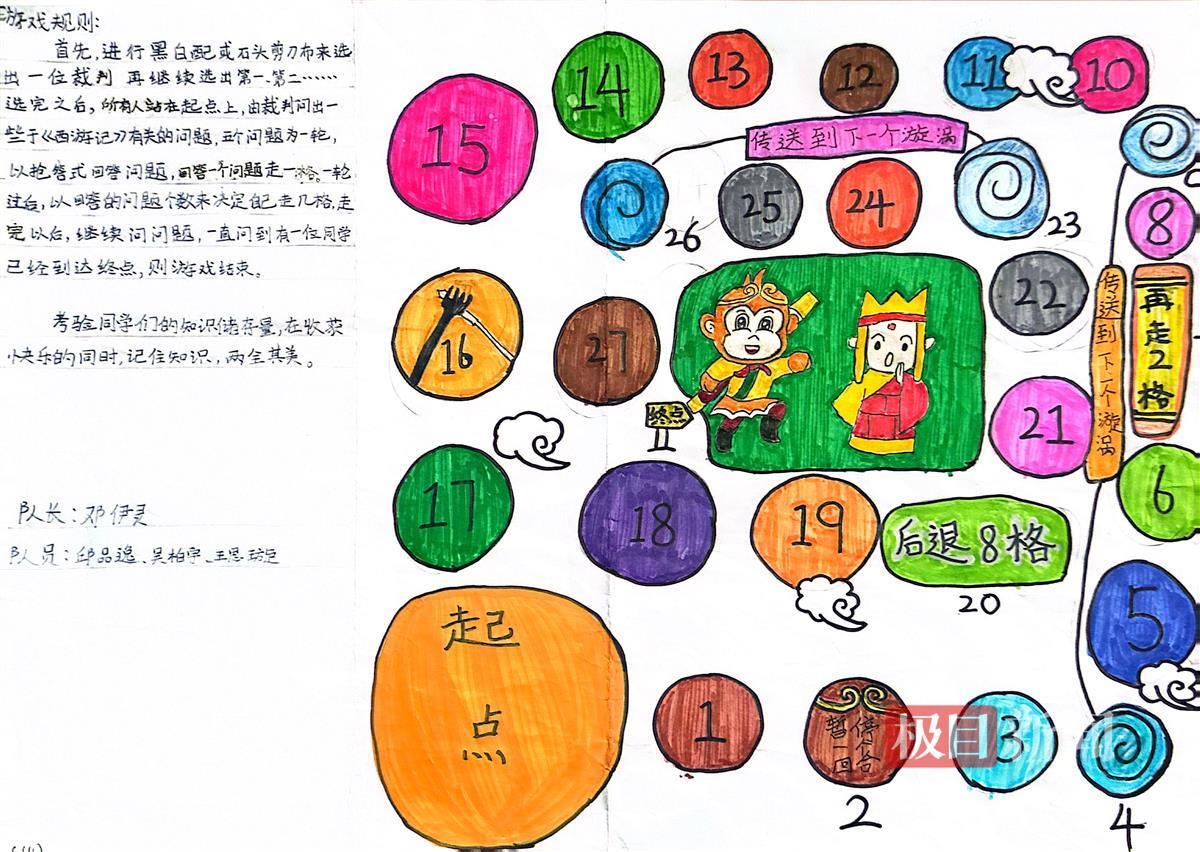 游戏规则:
首先,进行黑白配或石头剪刀布来选
出一位裁判 再继续选出第一、第二……
选完之后,所有人站在起点上,由裁判问出一
些于《西游记》有关的问题,五个问题为一轮,
以抢答式回答问题,回答一个问题走一格。一轮
过后,以回答的问题个数来决定自己走几格,走
完以后,继续问问题,一直问到有一位同学
已经到达终点,则游戏结束。
考验同学们的知识储存量,在收获
快乐的同时,记住知识,两全其美。
队长:邓伊灵
队员:邱品逸、吴柏宇、王思
起点
1
暂停一个回合
2
3
4
5
6
再走2格
8
10
11
12
13
14
15
16
17
18
19
后退8格
20
21
22
23
24
25
26
27
终点
传送到下一个漩涡
传送到下一个漩涡
极目新闻